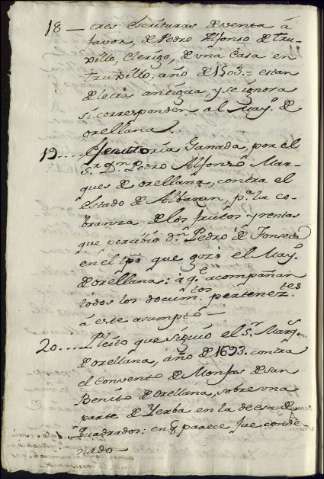 18 — tres Escrituras de venta á
favor, de Pedro Alfonso de Tru-
xillo, Clerigo, de una Casa en
Truxillo, año de 1503 = estan
de letra antigua, y se ignora
si corresponden al May.º de
orellana.
19.... Executoria Ganada, por el
S.r D.n Pedro Alfonso Mar-
ques de orellana, contra el
estado de p.r la co-
branza de los frutos y rentas
que percibio d.n Pedro de Fonseca
en el tpô que gozó el May.º
de orellana: á q.e acompañan
todos los docum.tos pertenez.tes
á este asumpto —
20.... Pleito que siguió el S.r Marq.s
de orellana, año de 1693 contra
el Convento de Monjas de San
Benito de orellana, sobre una
parte de Yerba en la deesa de
Quadrados: en q.e parece fue conde-
nado —